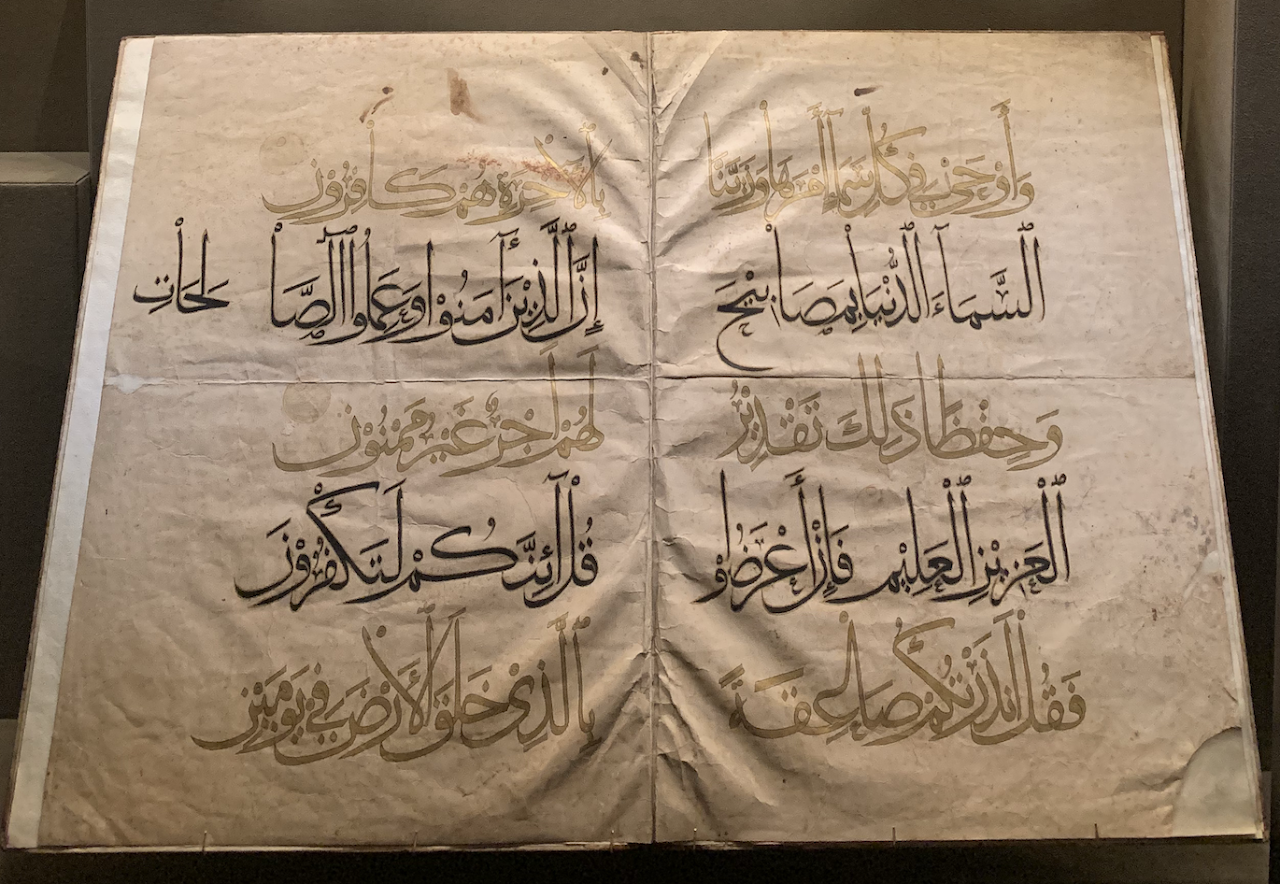 وَأَوْحَىٰ فِي كُلِّ سَمَاءٍ أَمْرَهَا وَزَيَّنَّا
السَّمَاءَ الدُّنْيَا بِمَصَابِيْحَ
وَحِفْظًا ذَلِكَ تَقْدِيْرُ
الْعَزِيْزِ الْعَلِيْمِ فَإِنْ أَعْرَضُوْا
فَقُلْ أَنْذَرْتُكُمْ صَاعِقَةً
بِالْآخِرَةِ هُمْ كَافِرُوْنَ
إِنَّ الَّذِيْنَ آمَنُوْا وَعَمِلُوا الصَّالِحَاتِ
لَهُمْ أَجْرٌ غَيْرُ مَمْنُوْنٍ
قُلْ أَئِنَّكُمْ لَتَكْفُرُوْنَ
بِالَّذِيْ خَلَقَ الْأَرْضَ فِيْ يَوْمَيْنِ